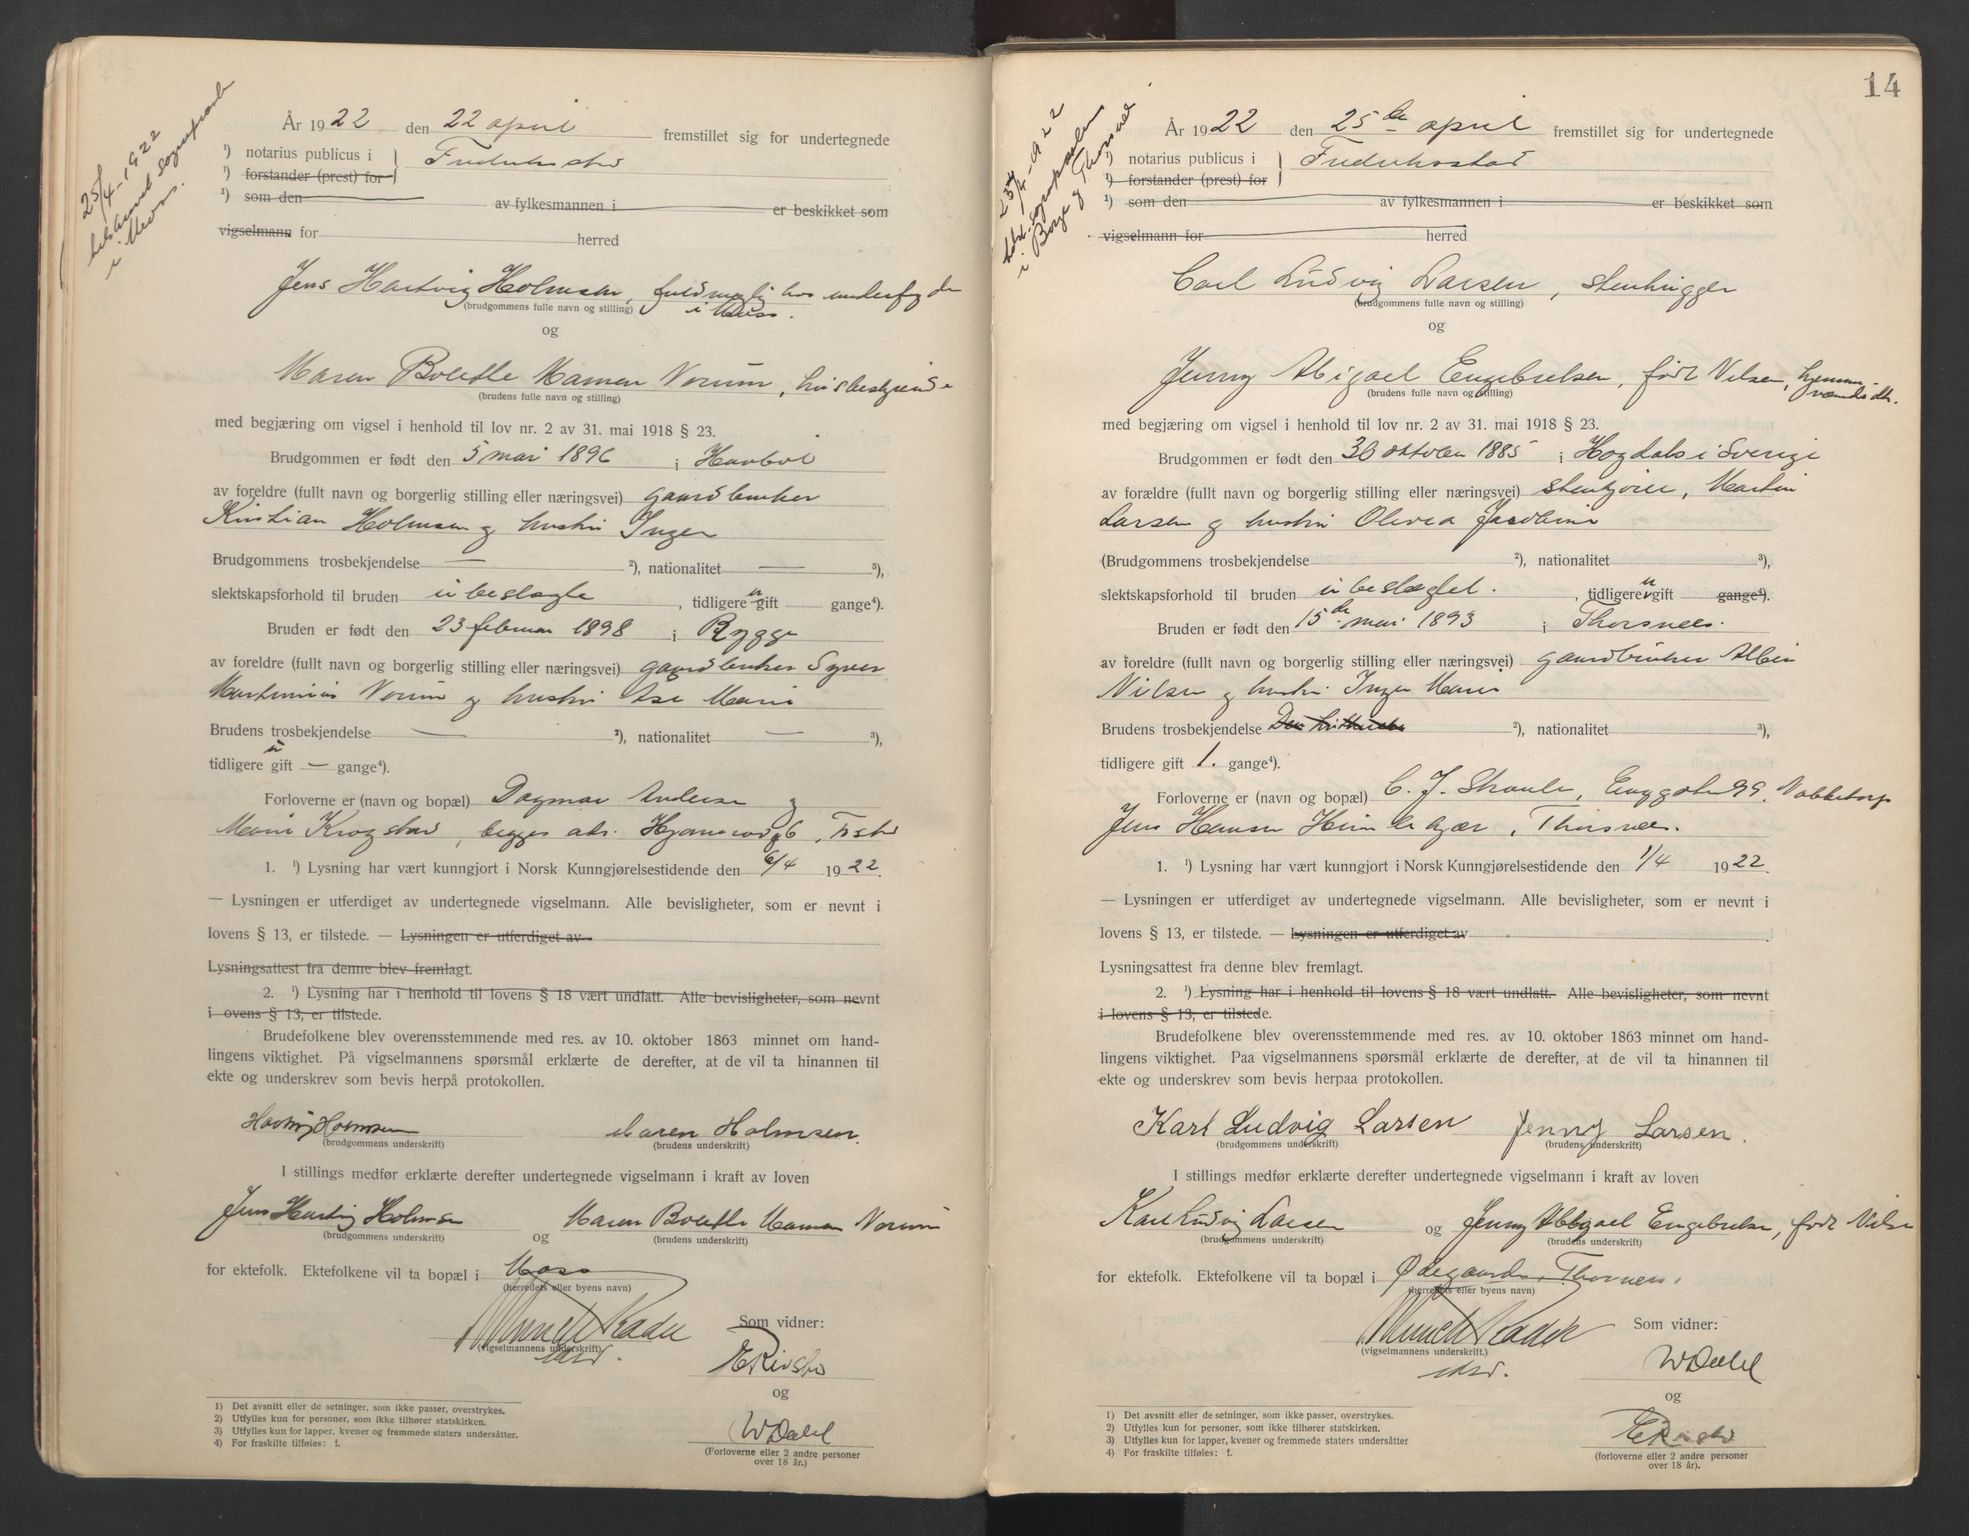 25/4-1922
i Moss.
År 1922 den 22 april fremstillet sig for undertegnede
¹) notarius publicus i Fredrikstad
¹) forstander (prest) for
¹) som den av fylkesmannen i er beskikket som
vigselmann for herred
Jens Hartvig Holmsen, fuldmægtig hos
i Moss.
(brudgommens fulle navn og stilling)
og
Maren Bolette Mamen Norum, husbestyrerinde
(brudens fulle navn og stilling)
med begjæring om vigsel i henhold til lov nr. 2 av 31. mai 1918 § 23.
Brudgommen er født den 5 mai 1896 i
av foreldre (fullt navn og borgerlig stilling eller næringsvei) gaardbruker
Kristian Holmsen og hustru Inger
Brudgommens trosbekjendelse — ²), nationalitet — ³),
slektskapsforhold til bruden ubeslægtet, tidligere u gift gange⁴).
Bruden er født den 23 februar 1898 i Rygge
av foreldre (fullt navn og borgerlig stilling eller næringsvei) gaardbruker Syver
Martinius Norum og hustru Åse Marie
Brudens trosbekjendelse — ²), nationalitet — ³),
tidligere u gift — gange⁴).
Forloverne er (navn og bopæl) Dagmar Andersen og
Marie Krogstad, begges adr. Fr.stad
1. ¹) Lysning har vært kunngjort i Norsk Kunngjørelsestidende den 6/4 1922.
— Lysningen er utferdiget av undertegnede vigselmann. Alle bevisligheter, som er nevnt i
lovens § 13, er tilstede. — Lysningen er utferdiget av
Lysningsattest fra denne blev fremlagt.
2. ¹) Lysning har i henhold til lovens § 18 vært undlatt. Alle bevisligheter, som nevnt
i ovens § 13, er tilstede.
Brudefolkene blev overensstemmende med res. av 10. oktober 1863 minnet om hand-
lingens viktighet. På vigselmannens spørsmål erklærte de derefter, at de vil ta hinannen til
ekte og underskrev som bevis herpå protokollen.
Hartvig Holmsen Maren Holmsen.
(brudgommens underskrift) (brudens underskrift)
I stillings medfør erklærte derefter undertegnede vigselmann i kraft av loven
Jens Hartvig Holmsen og Maren Bolette Mamen Norum
(brudgommens underskrift) (brudens underskrift)
for ektefolk. Ektefolkene vil ta bopæl i Moss
(herredets eller byens navn)
Som vidner:
(vigselmannens underskrift)
og
W Dahl
(Forloverne eller 2 andre personer
over 18 år.)
1) Det avsnitt eller de setninger, som ikke passer, overstrykes.
2) Utfylles kun for personer, som ikke tilhører statskirken.
3) Utfylles kun for lapper, kvener og fremmede staters undersåtter.
4) For fraskilte tilføies: f.
14
i Borge og Thorsnes
År 1922 den 25de april fremstillet sig for undertegnede
¹) notarius publicus i Fredrikstad
¹) forstander (prest) for
¹) som den av fylkesmannen i er beskikket som
vigselmann for herred
Carl Ludvig Larsen, stenhugger
(brudgommens fulle navn og stilling)
og
Jenny Abigael Engebretsen, født Nilsen,
(brudens fulle navn og stilling)
med begjæring om vigsel i henhold til lov nr. 2 av 31. mai 1918 § 23.
Brudgommen er født den 30 oktober 1885 i Hogdal i Sverige
av forældre (fullt navn og borgerlig stilling eller næringsvei) Martin
Larsen og hustru Olivia Jacobine
(Brudgommens trosbekjendelse ²), nationalitet ³),
slektskapsforhold til bruden ubeslægtet. , tidligere u gift gange⁴).
Bruden er født den 15de mai 1893 i Thorsnes.
av foreldre (fullt navn og borgerlig stilling eller næringsvei) gaardbruker Albin
Nilsen og hustru Inger Marie
Brudens trosbekjendelse ²), nationalitet ³),
tidligere gift 1. gange⁴).
Forloverne er (navn og bopæl) C. J.
Jens Hansen, Thorsnes.
1. ¹) Lysning har vært kunngjort i Norsk Kunngjørelsestidende den 1/4 1922.
— Lysningen er utferdiget av undertegnede vigselmann. Alle bevisligheter, som er nevnt i
lovens § 13, er tilstede. — Lysningen er utferdiget av
Lysningsattest fra denne blev fremlagt.
2. ¹) Lysning har i henhold til lovens § 18 vært undlatt. Alle bevisligheter, som nevnt
i lovens § 13, er tilstede.
Brudefolkene blev overensstemmende med res. av 10. oktober 1863 minnet om hand-
lingens viktighet. Paa vigselmannens spørsmål erklærte de derefter, at de vil ta hinannen til
ekte og underskrev som bevis herpaa protokollen.
Karl Ludvig Larsen Jenny Larsen.
(brudgommens underskrift) (brudens underskrift)
I stillings medfør erklærte derefter undertegnede vigselmann i kraft av loven
Karl Ludvig Larsen og Jenny Abigael Engebretsen, født Nilsen
(brudgommens underskrift) (brudens underskrift)
for ektefolk. Ektefolkene vil ta bopæl i Ødegaarden, Thorsnes.
(herredets eller byens navn)
Som vidner:
(vigselmannens underskrift)
W Dahl
og
(forloverne eller 2 andre personer
over 18 år).
1) Det avsnitt eller de setninger, som ikke passer, overstrykes.
2) Utfylles kun for personer, som ikke tilhører statskirken.
3) Utfylles kun for lapper, kvener og fremmede staters undersåtter
4) For fraskilte tilføies: f.